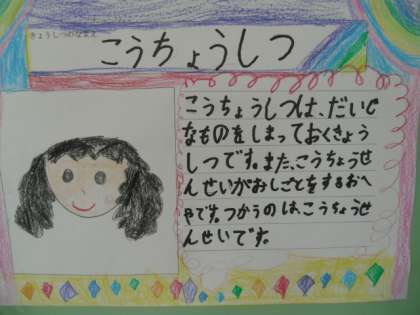 きょうしつのなまえ
こうちょうしつ
こうちょうしつは、だいじ
なものをしまっておくきょう
しつです。また、こうちょうせ
んせいがおしごとをするおへ
やです。つかうのは、こうちょうせ
んせいです。